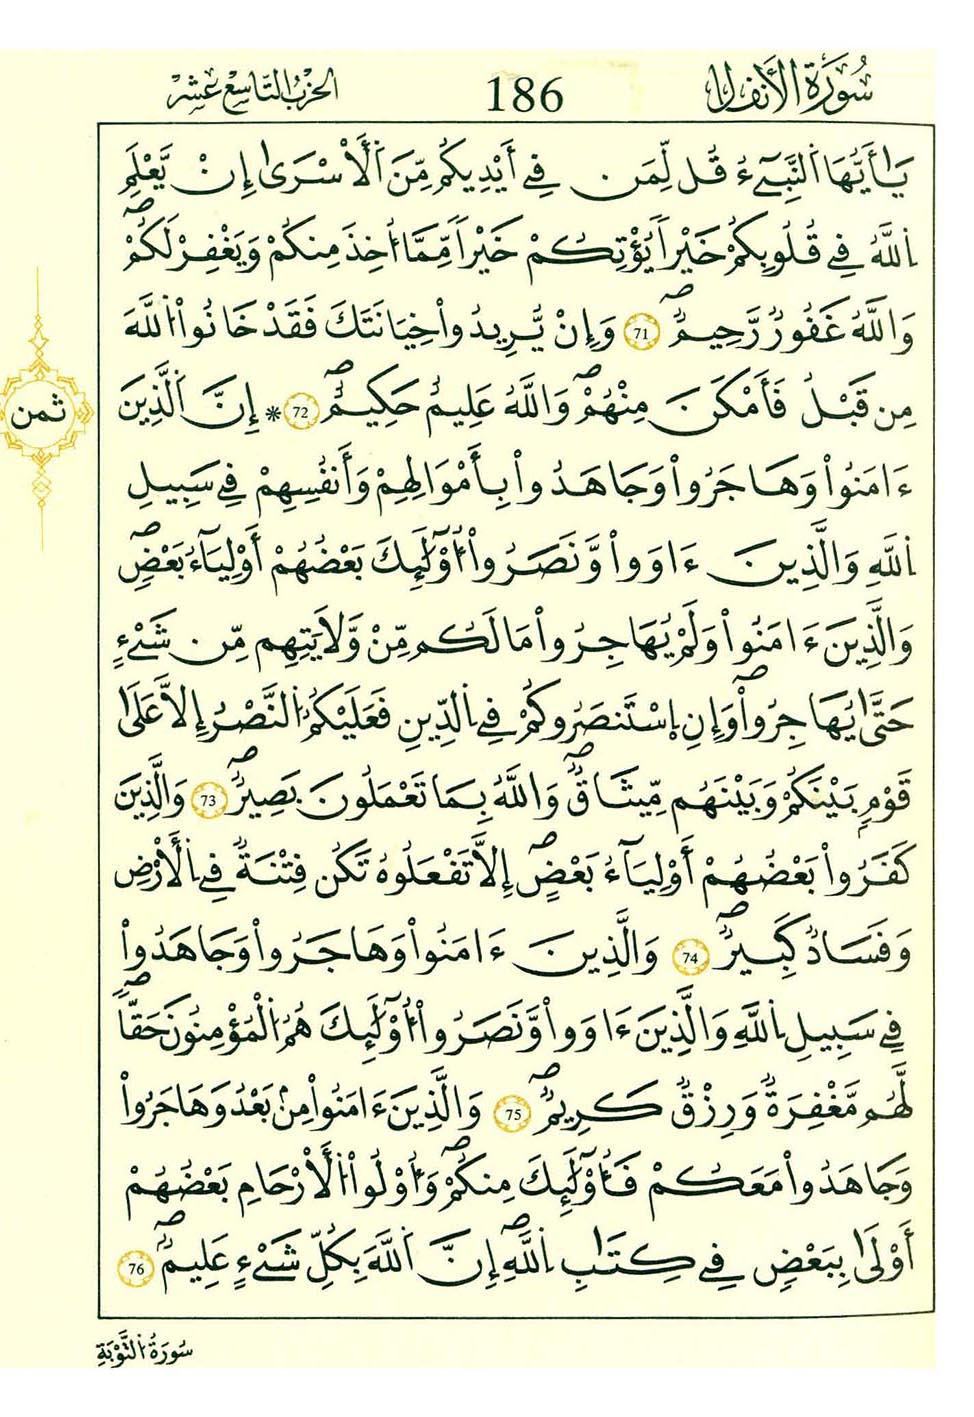 سُورَةُ الأَنفَالِ 186 الحِزْبُ التَّاسِعَ عَشَرَ
يَٰٓأَيُّهَا اَ۬لنَّبِےٓءُ قُل لِّمَن فِےٓ أَيْدِيكُم مِّنَ اَ۬لَاسْر۪ىٰٓ إِنْ يَّعْلَمِ
اِ۬للَّهُ فِے قُلُوبِكُمْ خَيْراٗ يُوتِكُمْ خَيْراٗ مِّمَّآ أُخِذَ مِنكُمْ وَيَغْفِرْ لَكُمْۖ
وَاللَّهُ غَفُورٞ رَّحِيمٞۖ 71 وَإِنْ يُّرِيدُواْ خِيَانَتَكَ فَقَدْ خَانُواْ اُ۬للَّهَ
مِن قَبْلُ فَأَمْكَنَ مِنْهُمْۖ وَاللَّهُ عَلِيمٌ حَكِيمٌۖ 72 * إِنَّ اَ۬لذِينَ
ءَامَنُواْ وَهَاجَرُواْ وَجَٰهَدُواْ بِأَمْوَٰلِهِمْ وَأَنفُسِهِمْ فِے سَبِيلِ
ثمن
اِ۬للَّهِ وَالذِينَ ءَاوَواْ وَّنَصَرُوٓاْ أُوْلَٰٓئِكَ بَعْضُهُمْ أَوْلِيَآءُ بَعْضٖۖ
وَالذِينَ ءَامَنُواْ وَلَمْ يُهَاجِرُواْ مَا لَكُم مِّنْ وَّلَٰيَتِهِم مِّن شَےْءٍ
حَتَّىٰ يُهَاجِرُواْۖ وَإِنِ اِ۪سْتَنصَرُوكُمْ فِے اِ۬لدِّينِ فَعَلَيْكُمُ اُ۬لنَّصْرُ إِلَّا عَلَىٰ
قَوْمِۢ بَيْنَكُمْ وَبَيْنَهُم مِّيثَٰقٞۖ وَاللَّهُ بِمَا تَعْمَلُونَ بَصِيرٞۖ 73 وَالذِينَ
كَفَرُواْ بَعْضُهُمْ أَوْلِيَآءُ بَعْضٍۖ إِلَّا تَفْعَلُوهُ تَكُن فِتْنَةٞ فِے اِ۬لَارْضِ
وَفَسَادٞ كَبِيرٞۖ 74 وَالذِينَ ءَامَنُواْ وَهَاجَرُواْ وَجَٰهَدُواْ
فِے سَبِيلِ اِ۬للَّهِ وَالذِينَ ءَاوَواْ وَّنَصَرُوٓاْ أُوْلَٰٓئِكَ هُمُ اُ۬لْمُومِنُونَ حَقّاٗۖ
لَّهُم مَّغْفِرَةٞ وَرِزْقٞ كَرِيمٞۖ 75 وَالذِينَ ءَامَنُواْ مِنۢ بَعْدُ وَهَاجَرُواْ
وَجَٰهَدُواْ مَعَكُمْ فَأُوْلَٰٓئِكَ مِنكُمْۖ وَأُوْلُواْ اُ۬لَارْحَامِ بَعْضُهُمْ
أَوْلَىٰ بِبَعْضٖ فِے كِتَٰبِ اِ۬للَّهِۖ إِنَّ اَ۬للَّهَ بِكُلِّ شَےْءٍ عَلِيمٞۖ 76
سُورَةُ التَّوْبَةِ